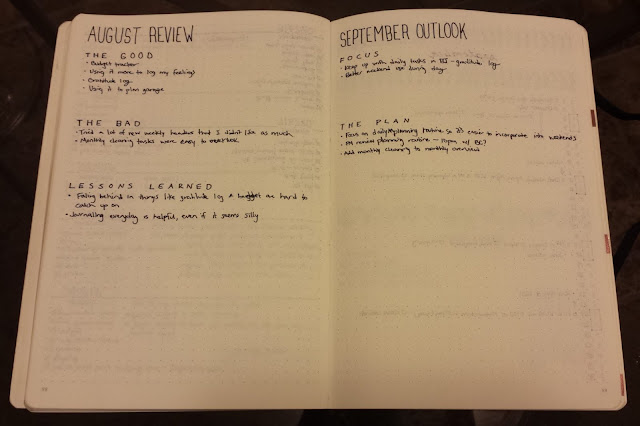 AUGUST REVIEW
THE GOOD
• Budget tracker
• Using it more to log my feelings
• Gratitude log
• Using it to plan garage
THE BAD
• Tried a lot of new weekly headers that I didn't like as much
• Monthly cleaning tasks were easy to overlook
LESSONS LEARNED
• Falling behind in things like gratitude log & budget are hard to
catch up on
• Journaling everyday is helpful, even if it seems silly
SEPTEMBER OUTLOOK
FOCUS
• Keep up with daily tasks in BJ - gratitude log
• Better weekend use during day
THE PLAN
• Focus on daily planning routine so it's easier to incorporate into weekends
• PM review/planning routine - 10pm w/ BC?
• Add monthly cleaning to monthly overview